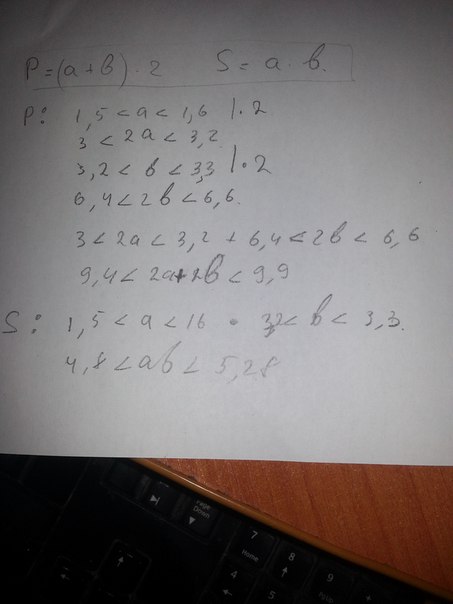 P=(a+b)·2 S=a·b.
P: 1,5<a<1,6 |·2
3<2a<3,2
3,2<b<3,3 |·2
6,4<2b<6,6.
3<2a<3,2 + 6,4<2b<6,6
9,4<2a+2b<9,9
S: 1,5<a<16 · 3,2<b<3,3.
4,8<ab<5,28
Page Down
7
Home
8
9
4
5